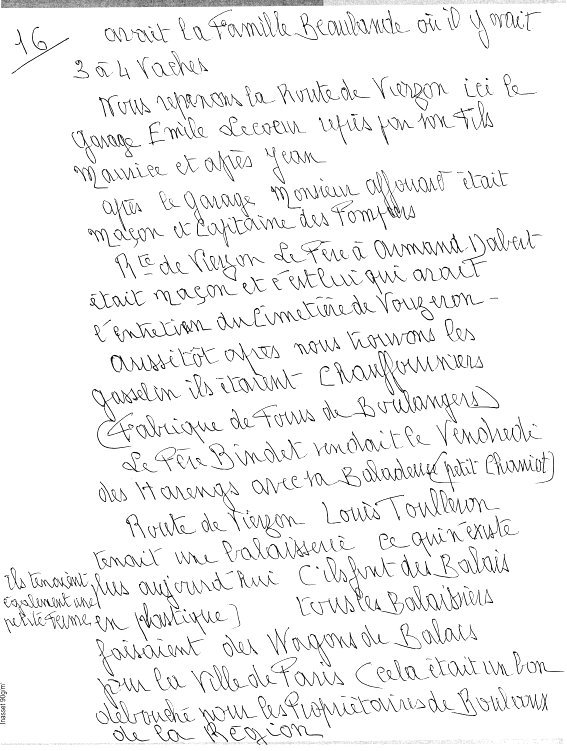 16
avait la Famille Beaubande où il y avait
3 à 4 Vaches
Nous reprenons la Route de Vierzon ici le
garage Emile Lecoeur repris par son Fils
Maurice et après Jean
après le garage Monsieur affouard était
maçon et Capitaine des Pompiers
Rte de Vierzon Le Père à Armand Dabert
était maçon et c'est lui qui avait
l'entretien du Cimetière de Vouzeron -
aussitôt après nous trouvons les
gasselin ils étaient Chauffourniers
(Fabrique de Fours de Boulangers)
Le Père Bindet vendait le Vendredi
des Harengs avec sa Baladeuse (petit Chariot)
Route de Vierzon Louis Toulleron
tenait une balaisserie ce qui n'existe
plus aujourd'hui (ils font des Balais
en plastique) tous les Balaisiers
faisaient des Wagons de Balais
pour la Ville de Paris (cela était un bon
débouché pour les Propriétaires de Bouleaux
de la Région
Ils tenaient
également une
petite Ferme